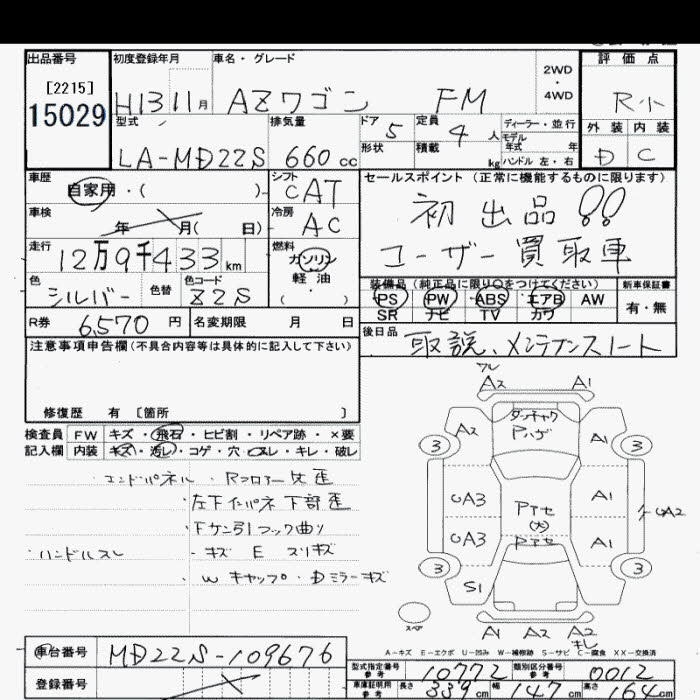 出品番号
[2215]
15029
初度登録年月
H13 11月
車名・グレード
AZワゴン FM
2WD
・
4WD
評価点
R小
外装 内装
D C
型式
LA-MD22S
排気量
660 cc
ドア 5
形状
定員 4 人
積載 kg
ディーラー・並行
モデル
年式 年
ハンドル 左・右
車歴
自家用・( )
シフト
CAT
車検
年 月( 日)
冷房
AC
セールスポイント (正常に機能するものに限ります)
初出品!!
ユーザー買取車
走行
12万9千433km
燃料
ガソリン
軽油
( ・ )
色
シルバー
色替
色コード
Z2S
装備品 (純正品に限り○をつけてください)
PS PW ABS エアB AW
SR ナビ TV カワ
新車保証書
有・無
R券 6,570 円
名変期限 月 日
後日品
取説、メンテナンスノート
注意事項申告欄(不具合内容等は具体的に記入して下さい)
修復歴 有 [箇所 ]
検査員
記入欄
FW キズ・飛石・ヒビ割・リペア跡・×要
内装 キズ・汚レ・コゲ・穴・スレ・キレ・破レ
エンドパネル・Rフロアー欠歪
・左下インパネ下部歪
・下サン引フック曲り
・ハンドルスレ ・キズ E スリキズ
・W キャップ・DミラーキズA2 A1
A2 ダッチャク Pハゲ A1
3 3
UA3 A1
Pアセ
(大)
UA3 Pアセ A1
UA2
3 3
S1
スペア
A1 A2 A2
キレ
A-キズ E-エクボ U-凹み W-補修跡 S-サビ C-腐食 XX-交換済
車台番号 MD22S-109676
登録番号
型式指定番号
参考
10772
類別区分番号
参考
0012
車庫証明用
参考
長さ 339cm 幅 147cm 高さ 164cm